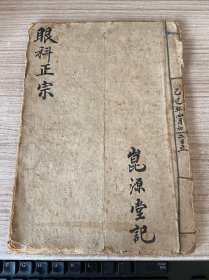 眼科正宗
崑源堂記